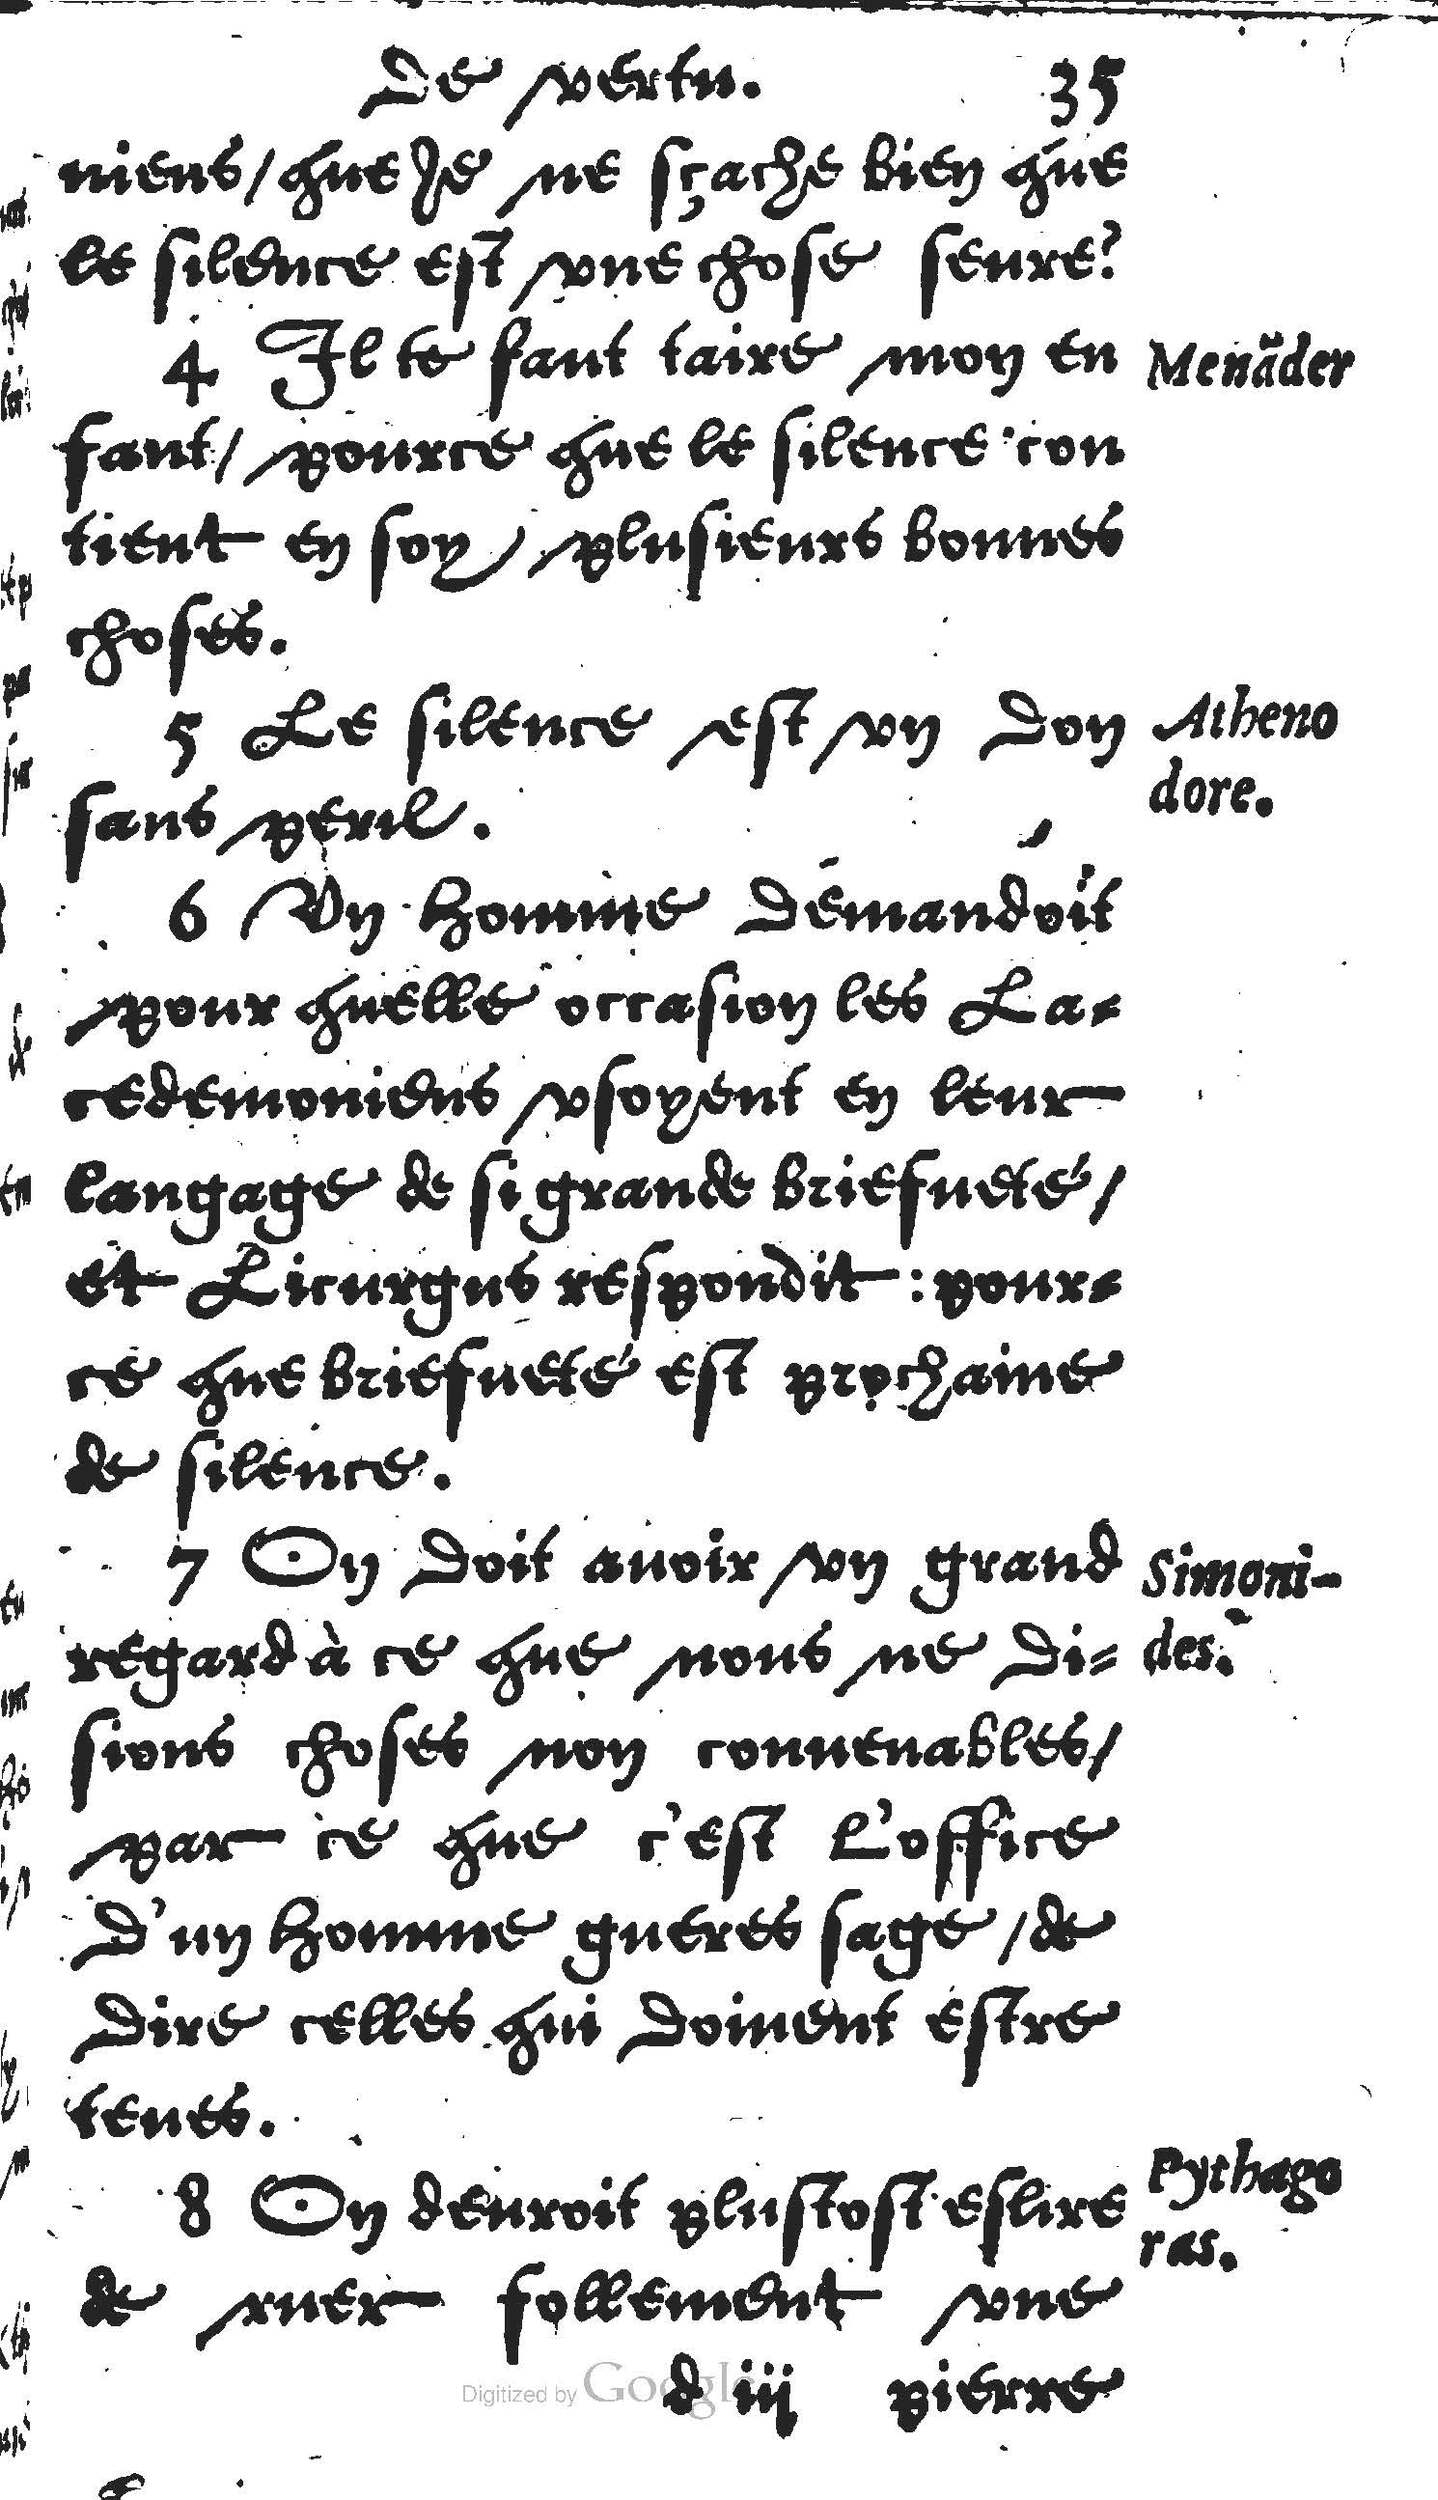 De vertu. 35
niens/ que Je ne sçache bien que
le silence est vne chose seure?
4 Il te faut taire mon en
Menãder
fant/ pource que le silence con
tient en soy plusieurs bonnes
choses.
5 Le silence est vn don
Atheno
dore.
sans peril.
6 Vn homme demandoit
pour quelle occasion les La=
cedemoniens vsoyent en leur
langage de si grande briefueté/
et Licurgus respondit: pour=
ce que briefueté est prochaine
de silence.
7 On doit auoir vn grand
Simoni-
des.
regard à ce que nous ne di=
sions choses non conuenables/
par ce que c'est l'office
d'un homme gueres sage/ de
dire celles qui doiuent estre
teues.
8 On deuroit plustost eslire
Pythago
ras.
de ruer follement vne
d iij pierre
Digitized by Google